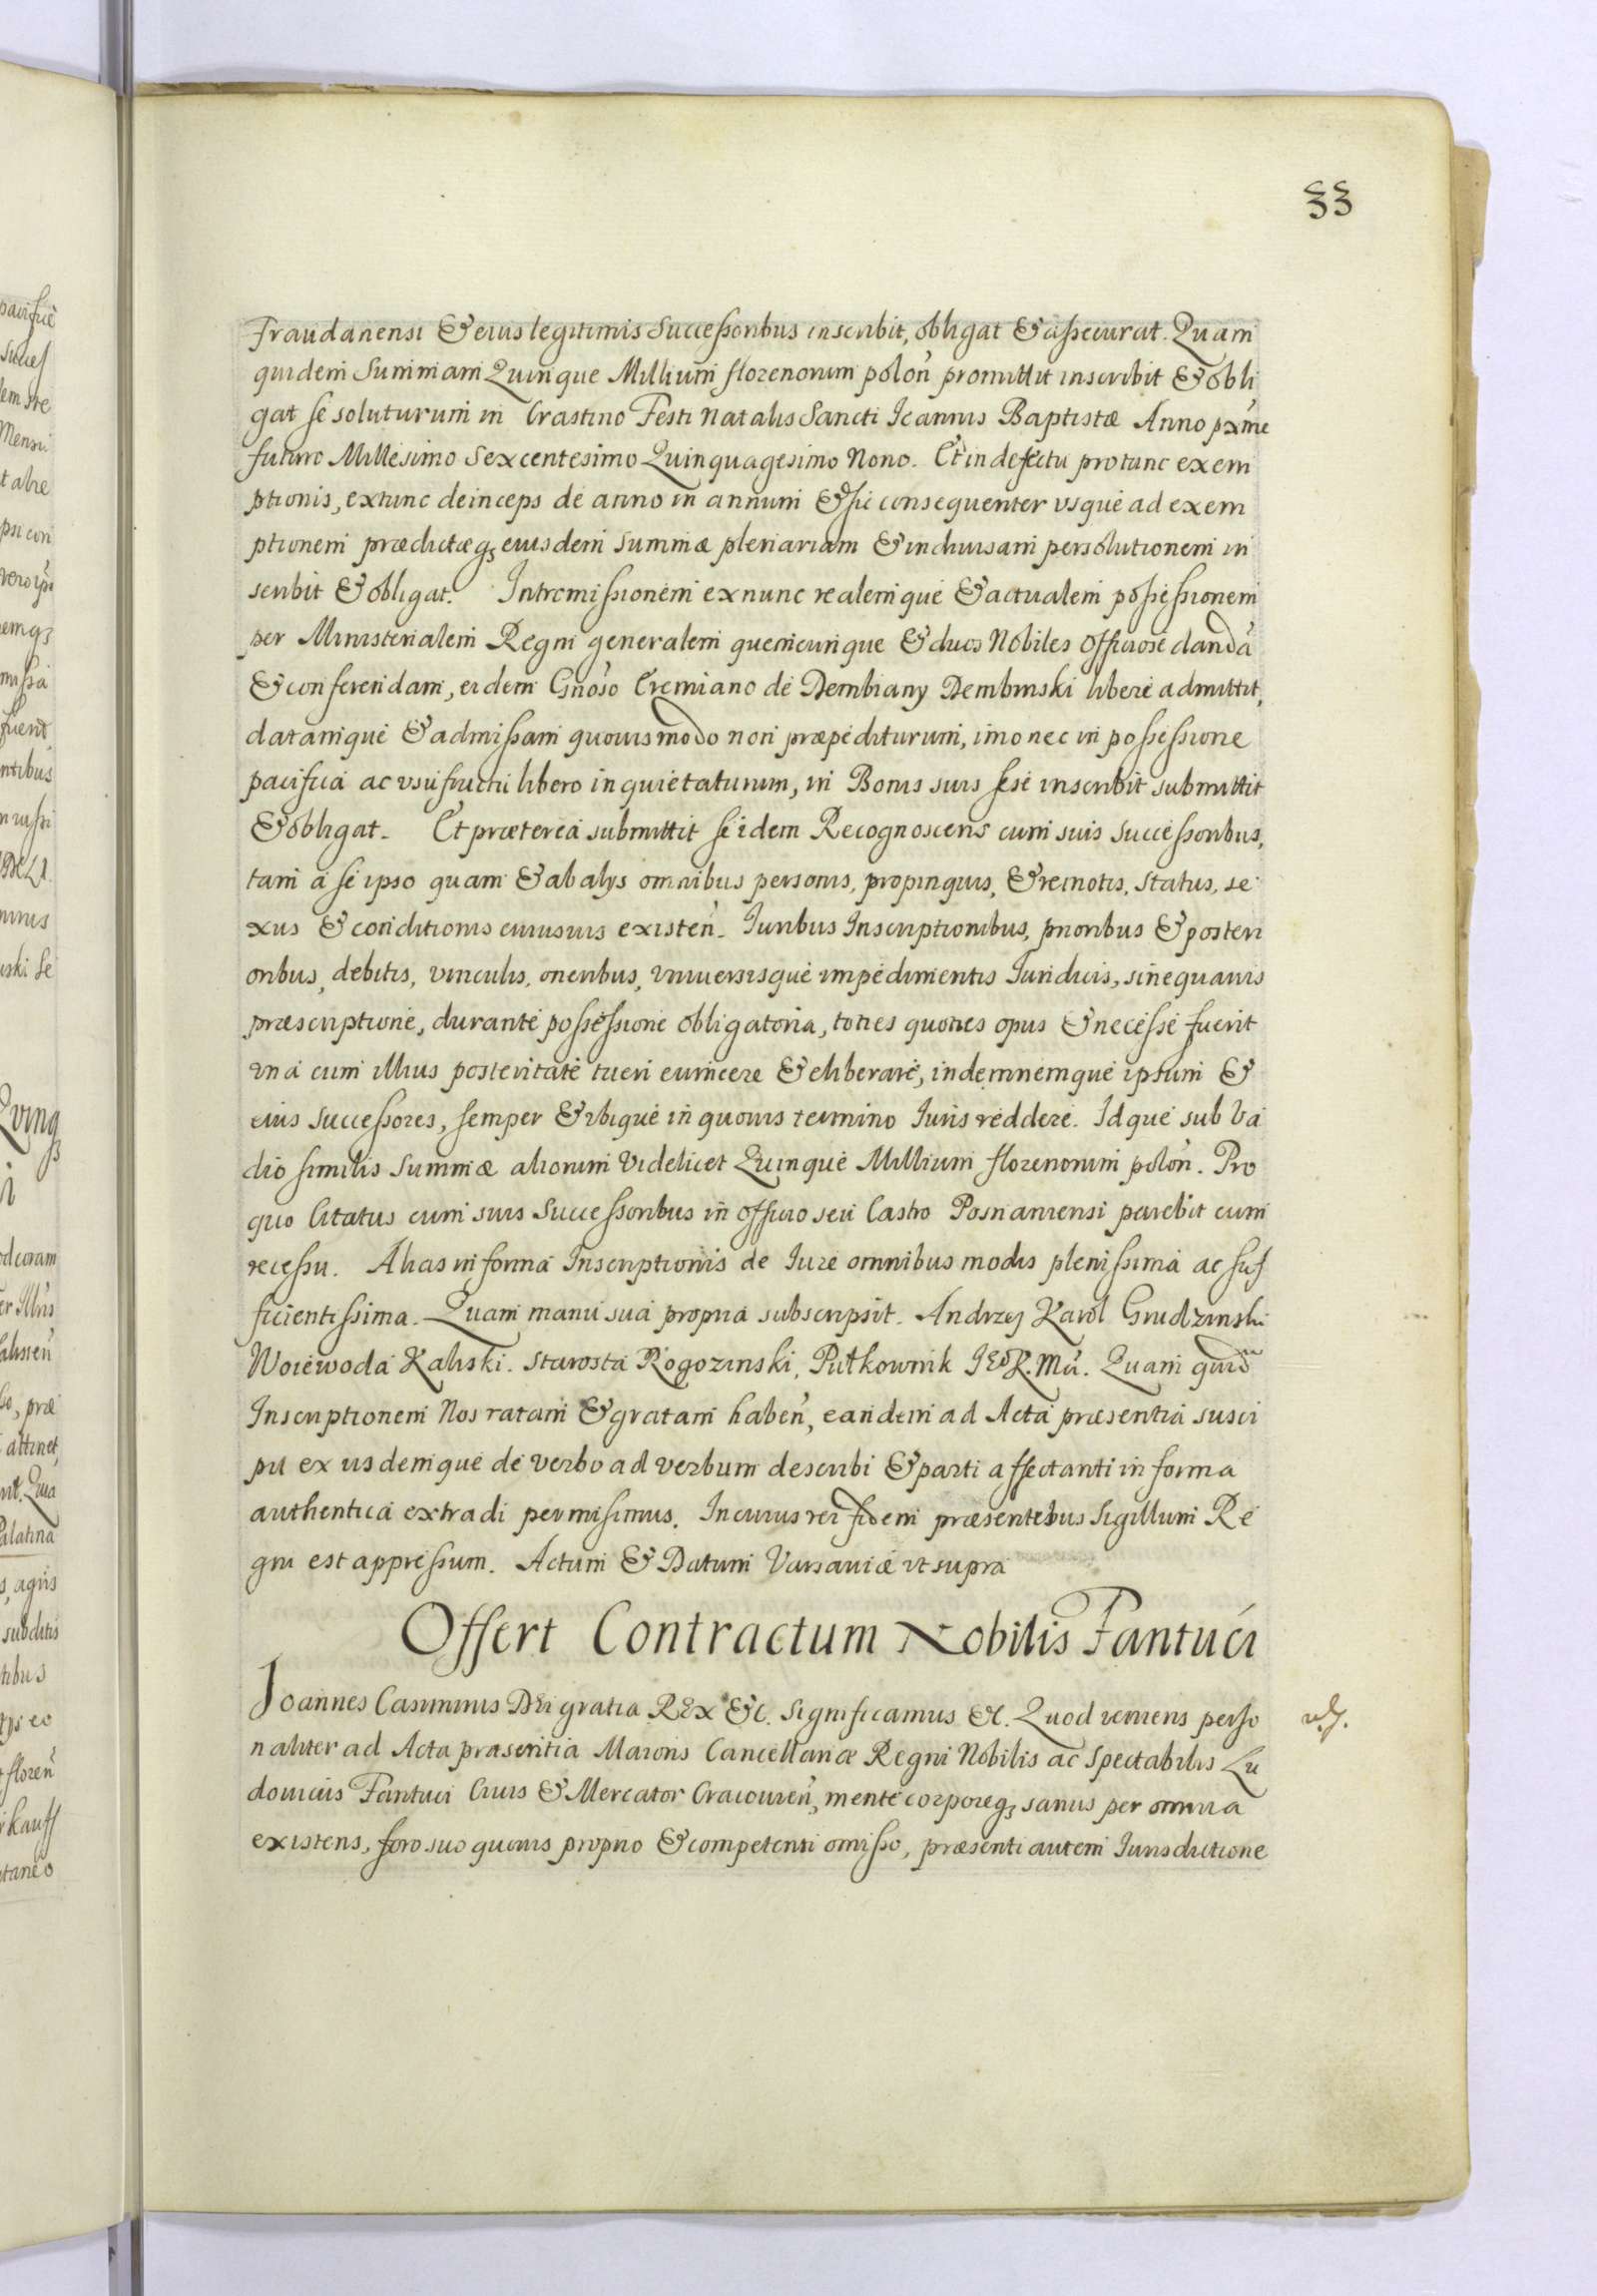 33
Fraudanensi & eius legitimis Successoribus inscribit, obligat & assecurat. Quam
quidem Summam Quinque Millium florenorum polon̄ promittit inscribit & obli
gat se soluturum in Crastino Festi Natalis Sancti Ioannis Baptistæ Anno pxm̄e
futuro Millesimo Sexcentesimo Quinquagesimo Nono. Et in defectu pro tunc exem
ptionis, extunc deinceps de anno in annum & sic consequenter vsque ad exem
ptionem prædictæqȝ eiusdem summæ plenariam & indiuisam persolutionem in
scribit & obligat. Intromissionem ex nunc realemque & actualem possessionem
per Ministerialem Regni generalem quemcunque & duos Nobiles officiose dandā
& conferendam, eidem Gnōso Cremiano de Dembiany Dembinski libere admittit,
datamque & admissam quouismodo non præpediturum, imo nec in possessione
pacifica ac vsufructu libero inquietaturum, in Bonis suis sese inscribit submittit
& obligat. Et præterea submittit se idem Recognoscens cum suis successoribus,
tam a se ipso quam & ab alys omnibus personis, propinquis, & remotis, status, se
xus & conditionis cuiusuis existen̄. Iuribus Inscriptionibus, prioribus & posteri
oribus, debitis, vinculis, oneribus, vniuersisque impedimentis Iuridicis, sine quauis
præscriptione, durante possessione obligatoria, toties quoties opus & necesse fuerit
vna cum illius posteritate tueri euincere & eliberare, indemnemque ipsum &
eius successores, semper & vbique in quouis termino Iuris reddere. Idque sub Va
dio similis Summæ aliorum videlicet Quinque Millium florenorum polon̄. Pro
quo Citatus cum suis Successoribus in officio seu Castro Posnaniensi parebit cum
recessu. Alias in forma Inscriptionis de Iure omnibus modis plenissima ac suf
ficientissima. Quam manu sua propria subscripsit. Andrzej Karol Grudzinski
Woiewoda Kaliski. Starosta Rogozinski, Pułkownik IEo K. Mci. Quam quid̄
Inscriptionem Nos ratam & gratam haben̄, eandem ad Acta præsentia susci
pi ex iisdemque de verbo ad verbum describi & parti affectanti in forma
authentica extradi permisimus. In cuius rei fidem præsentebus Sigillum Re
gni est appressum. Actum & Datum Varsauiæ vt supra
Offert Contractum Nobilis Fantuci
Ioannes Casimirus Dei gratia REx &c. Significamus &c. Quod veniens perso
naliter ad Acta præsentia Maioris Cancellariæ Regni Nobilis ac Spectabilis Lu
douicus Fantuci Ciuis & Mercator Cracouien̄, mente corporeqȝ sanus per omnia
existens, foro suo quouis proprio & competenti omisso, præsenti autem Iurisdictione